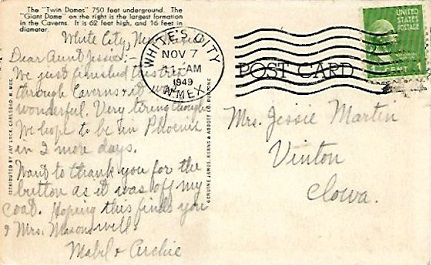 The "Twin Domes" 750 feet underground. The
"Giant Dome" on the right is the largest formation
in the Caverns. It is 62 feet high, and 16 feet in
diameter.
White City, New
Dear Aunt Jessie:-
We just finished this trip
through Caverns & it was
wonderful. Very tiring though
We hope to be in Phoenix
in 2 more days.
Want to thank you for the
button as it was off my
coat. Hoping this finds you
& Mrs. Mason well.
Mabel & Archie
WHITE'S CITY
NOV 7
11 AM
1949
N. MEX
POST CARD
UNITED STATES
POSTAGE
Mrs. Jessie Martin
Vinton
Iowa.
DISTRIBUTED BY JAY LECK, CARLSBAD, N. MEX.